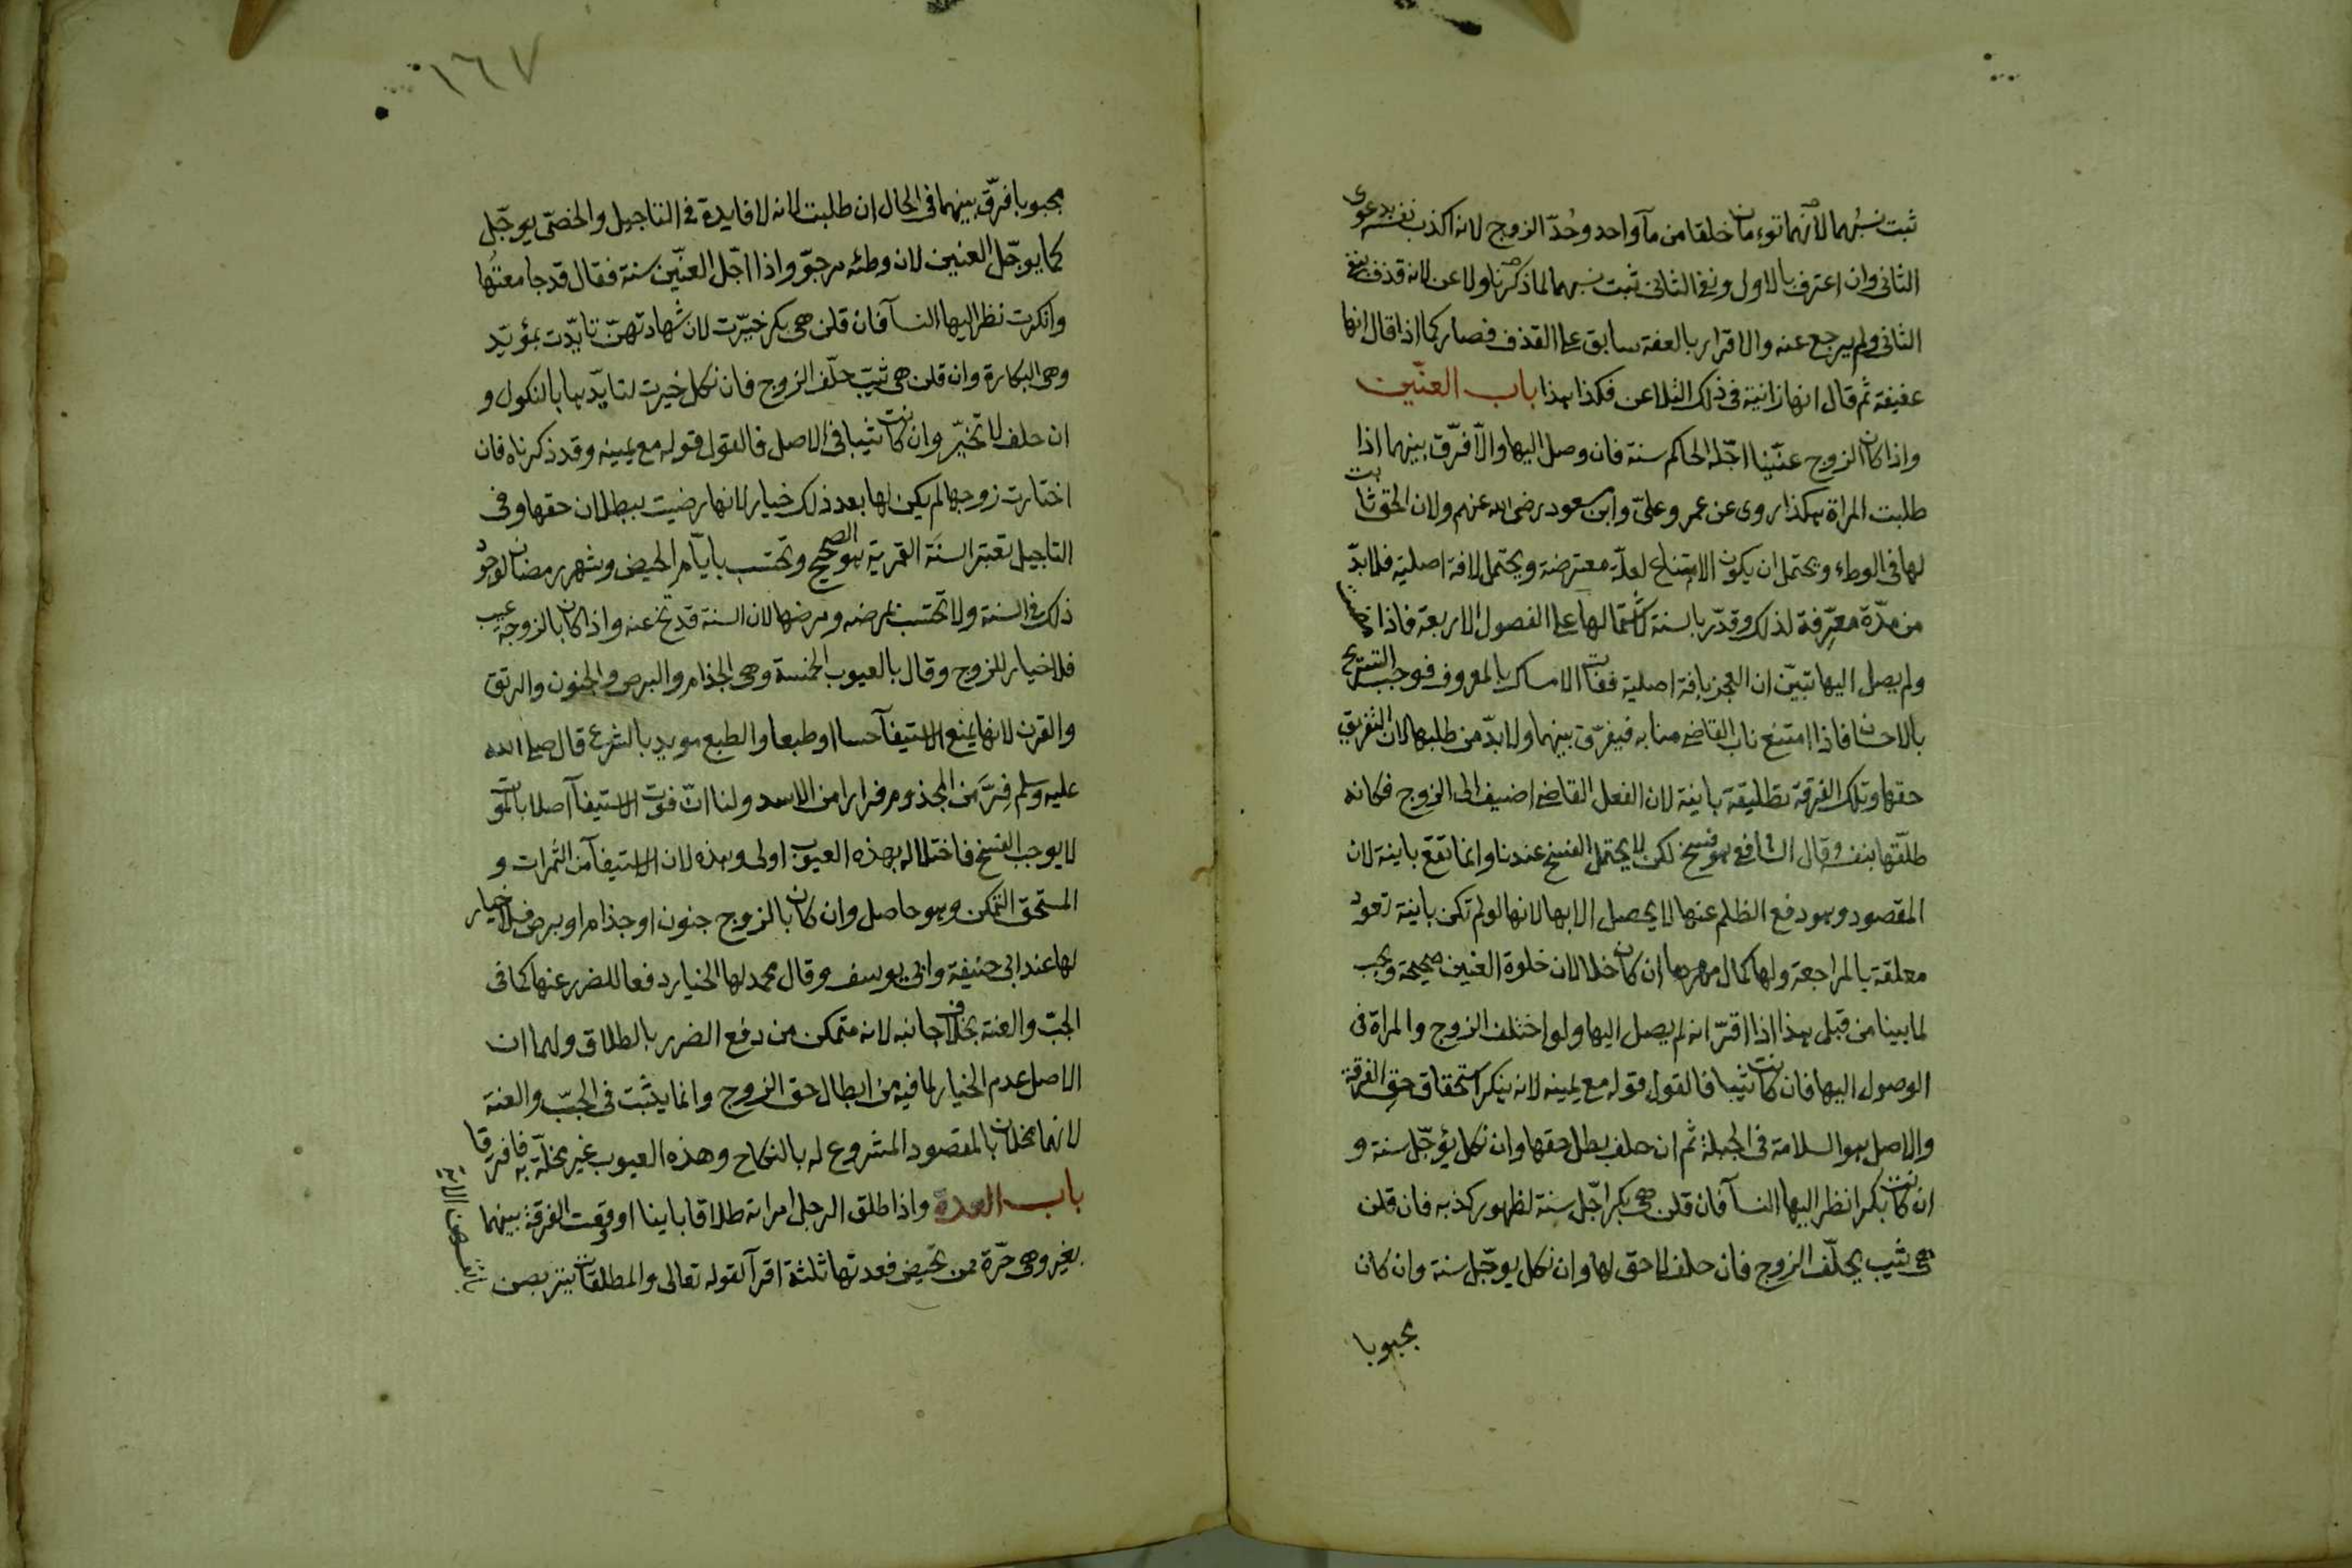 ثبت نسبهما لانهما توءمان خلقا من مآ واحد وحُدّ الزوج لانه اكذب نفسه بدعوى
الثانى وان اعترف بالاول ونفى الثانى ثبت نسبهما لما ذكرنا ولاعن لانه قذف بنفى
الثانى ولم يرجع عنه والاقرار بالعفة سابق على القذف فصار كما اذا قال انها
عفيفة ثم قال انها زانية فى ذلك التلاعن فكذا هذا باب العنّين
واذا كان الزوج عنّينا اجّله الحاكم سنة فان وصل اليها والّا فرّق بينهما اذا
طلبت المراة هكذا روى عن عمر وعلىّ وابن مسعود رضى الله عنهم ولان الحق ثابت
لها فى الوطء ويحتمل ان يكون الامتناع لعلّة معترضة ويحتمل لافة اصلية فلا بدّ
من مدّة معرّفة لذلك وقدّر بالسنة لاشتمالها على الفصول الاربعة فاذا مضت
ولم يصل اليها تبيّن ان العجز بافة اصلية ففات الامساك بالمعروف فوجب التسريح
بالاحسان فاذا امتنع ناب القاضى منابه فيفرّق بينهما ولا بدّ من طلبها لان التفريق
حقها وتلك الفرقة تطليقة باينة لان الفعل القاضى اضيف الى الزوج فكانه
طلّقها بنفسه وقال الشافعى هو فسخ لكن لا يحتمل الفسخ عندنا وانما تقع باينة لان
المقصود وهو دفع الظلم عنها لا يحصل الا بها لانها لو لم تكن باينة تعود
معلقة بالمراجعة ولها كمال مهرها ان كان خلا لان خلوة العنين صحيحة ويجب
لما بينا من قبل هذا اذا اقرّ انه لم يصل اليها ولو اختلف الزوج والمراة فى
الوصول اليها فان كانت ثيبا فالقول قوله مع يمينه لانه ينكر استحقاق حق الفرقة
والاصل هو السلامة فى الجبلة ثم ان حلف بطل حقها وان نكل يؤجّل سنة و
ان كانت بكرا نظر اليها النسآ فان قلن هى بكر اجّل سنة لظهور كذبه فان قلن
هى ثيب يحلّف الزوج فان حلف لا حق لها وان نكل يوجّل سنة وان كان
مجبوبا
١٦٧
مجبوبا فرّق بينهما فى الحال ان طلبت لانه لا فايدة فى التاجيل والخصّى يوجّل
كما يوجّل العنين لان وطئه مرجوّ واذا اجّل العنّين سنة فقال قد جامعتُها
وانكرت نظر اليها النسآ فان قلن هى بكر خيّرت لان شهادتهنّ تايّدت بمؤيّد
وهى البكارة وان قلن هى ثيّب حلّف الزوج فان نكل خيرت لتايّدها بالنكول و
ان حلف لا تخيّر وان كانت ثيبا فى الاصل فالقول قوله مع يمينه وقد ذكرناه فان
اختارت زوجها لم يكن لها بعد ذلك خيار لانها رضيت ببطلان حقها وفى
التاجيل تعتبر السنَة القمرية هو الصحيح وتحتسب بايّام الحيض وشهر رمضان لوجود
ذلك فى السنة ولا تحتسب بمرضه ومرضها لان السنة قد تخ عنه واذا كان بالزوجة عيب
فلا خيار للزوج وقال بالعيوب الخمسة وهى الجذام والبرص والجنون والرتق
والقرن لانها يمنع الاستيفآ حسا او طبعا والطبع مويد بالشرع قال صلى الله
عليه وسلم فِرَّ من المجذوم فرارا من الاسد ولنا انّ فوت الاستيفآ اصلا بالموت
لا يوجب الفسخ فاختلاله بهذه العيوب اولى وهذه لان الاستيفآ من الثمرات و
المستحق التمكن وهو حاصل وان كان بالزوج جنون او جذام او برص فلا خيار
لها عند ابى حنيفة وابى يوسف وقال محمد لها الخيار دفعا للضرر عنها كما فى
الجبّ والعنة بخلاف جانبه لانه متمكن من دفع الضرر بالطلاق ولهما ان
الاصل عدم الخيار لما فيه من ابطال حق الزوج وانما يثبت فى الجبّ والعنة
لانهما يخلان بالمقصود المشروع له بالنكاح وهذه العيوب غير مخلّة به فافترقا
باب العدة واذا طلق الرجل امراته طلاقا باينا او وقعت الفرقة بينهما
بغير وهى حرّة ممن تحيض فعدتها ثلثة اقرآ لقوله تعالى والمطلقات يتربصن